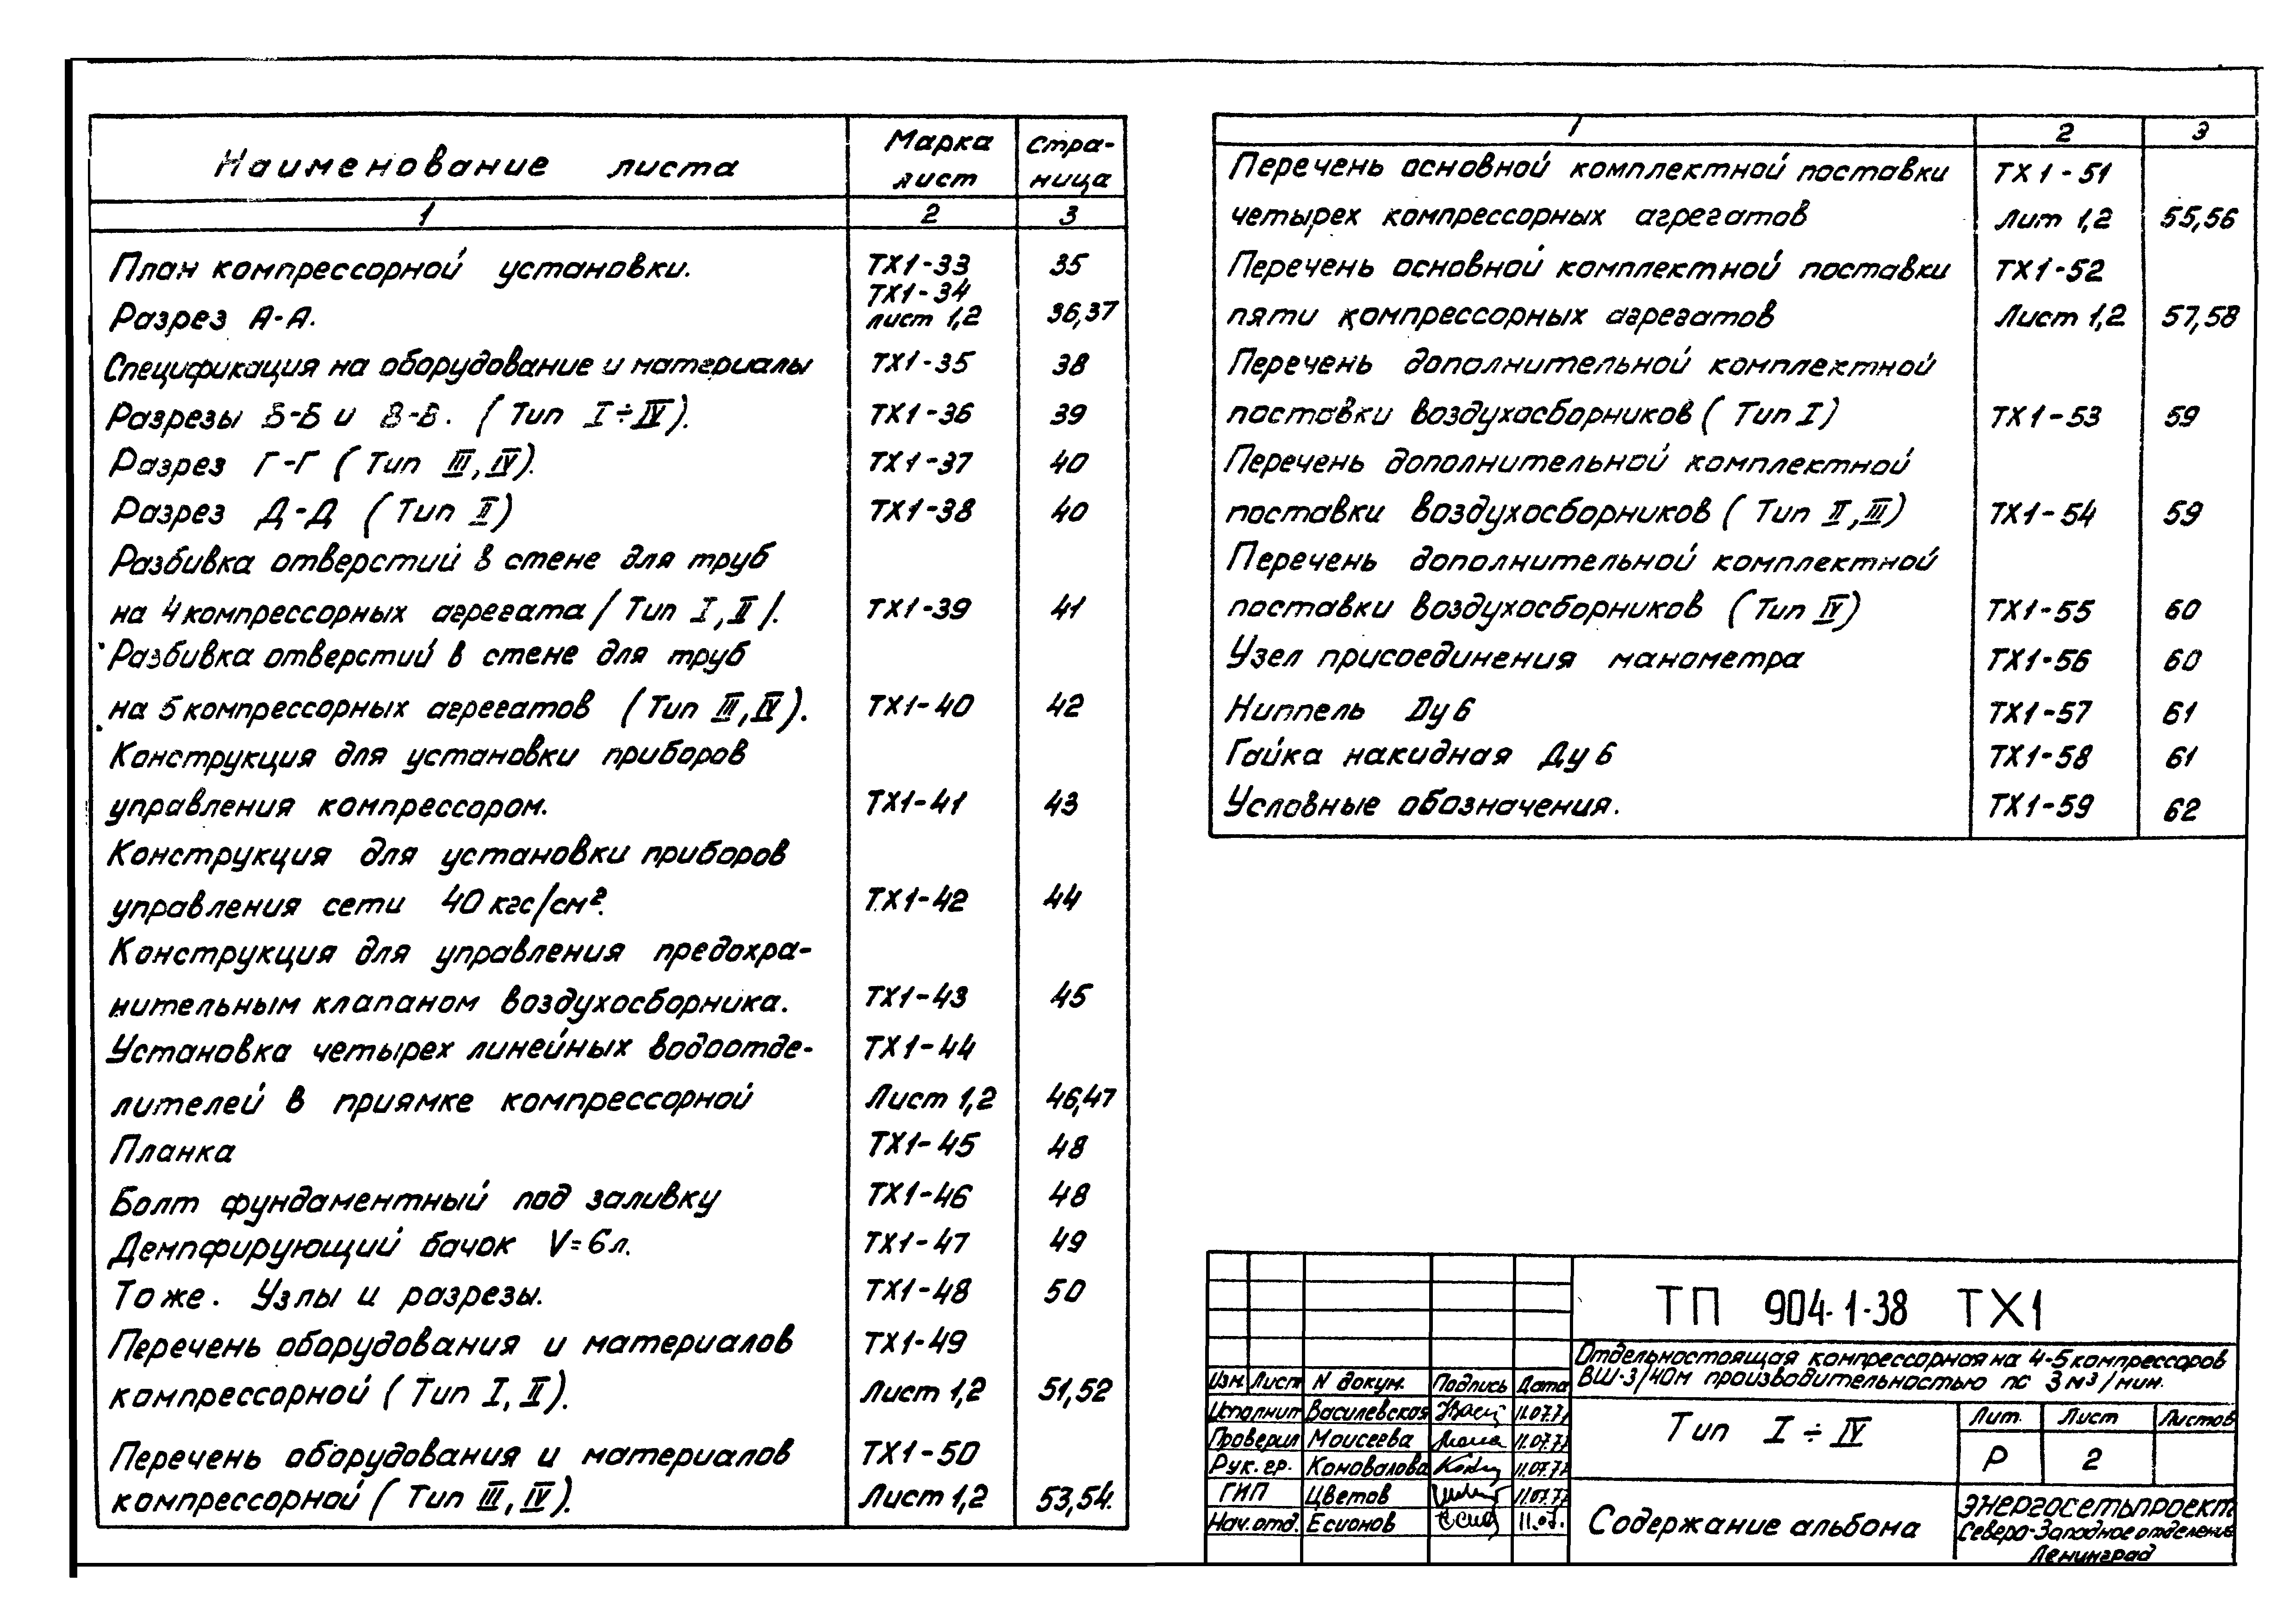 Наименование листа
Марка лист
Стра-ница
1 2 3
План компрессорной установки. ТХ1-33 35
Разрез А-А. ТХ1-34 лист 1,2 36,37
Спецификация на оборудование и материалы ТХ1-35 38
Разрезы Б-Б и В-В. (Тип I÷IV). ТХ1-36 39
Разрез Г-Г (Тип III, IV). ТХ1-37 40
Разрез Д-Д (Тип II) ТХ1-38 40
Разбивка отверстий в стене для труб
на 4 компрессорных агрегата /Тип I, II/. ТХ1-39 41
Разбивка отверстий в стене для труб
на 5 компрессорных агрегатов (Тип III, IV). ТХ1-40 42
Конструкция для установки приборов
управления компрессором. ТХ1-41 43
Конструкция для установки приборов
управления сети 40 кгс/см². ТХ1-42 44
Конструкция для управления предохра-
нительным клапаном воздухосборника. ТХ1-43 45
Установка четырех линейных водоотде- ТХ1-44
лителей в приямке компрессорной Лист 1,2 46,47
Планка ТХ1-45 48
Болт фундаментный под заливку ТХ1-46 48
Демпфирующий бачок V=6л. ТХ1-47 49
Тоже. Узлы и разрезы. ТХ1-48 50
Перечень оборудования и материалов ТХ1-49
компрессорной (Тип I, II). Лист 1,2 51,52
Перечень оборудования и материалов ТХ1-50
компрессорной (Тип III, IV). Лист 1,2 53,54.
1 2 3
Перечень основной комплектной поставки ТХ1-51
четырех компрессорных агрегатов Лит 1,2 55,56
Перечень основной комплектной поставки ТХ1-52
пяти компрессорных агрегатов Лист 1,2 57,58
Перечень дополнительной комплектной
поставки воздухасборников (Тип I) ТХ1-53 59
Перечень дополнительной комплектной
поставки воздухосборников (Тип II, III) ТХ1-54 59
Перечень дополнительной комплектной
поставки воздухосборников (Тип IV) ТХ1-55 60
Узел присоединения манометра ТХ1-56 60
Ниппель Ду 6 ТХ1-57 61
Гайка накидная Ду 6 ТХ1-58 61
Условные обозначения. ТХ1-59 62
ТП 904-1-38 ТХ1
Отдельностоящая компрессорная на 4-5 компрессоров
ВШ-3/40м производительностью по 3 м³/мин.
Изм. Лист N докум. Подпись Дата
Исполнит Василевская 11.07.77
Проверил Моисеева 11.07.77
Рук. гр. Коновалова 11.07.77
ГИП Цветов 11.07.77
Нач. отд. Есионов 11.07.
Тип I ÷ IV
Лит. Лист Листов
Р 2
Содержание альбома
Энергосетьпроект
Северо-Западное отделение
Ленинград